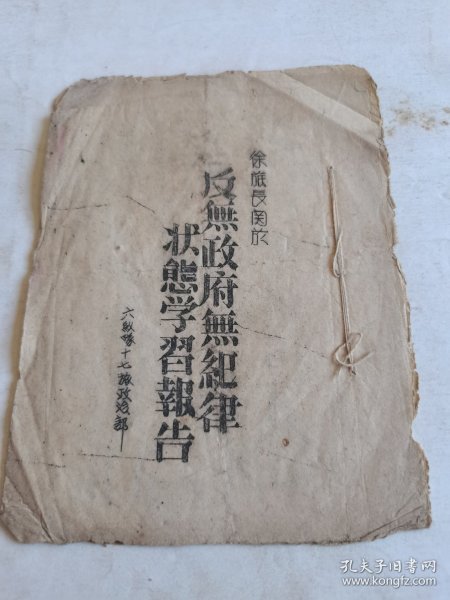 徐旅長関於
反無政府無紀律
状態学習報告
六縱隊十七旅政治部
孔夫子旧书网
www.kongfz.com